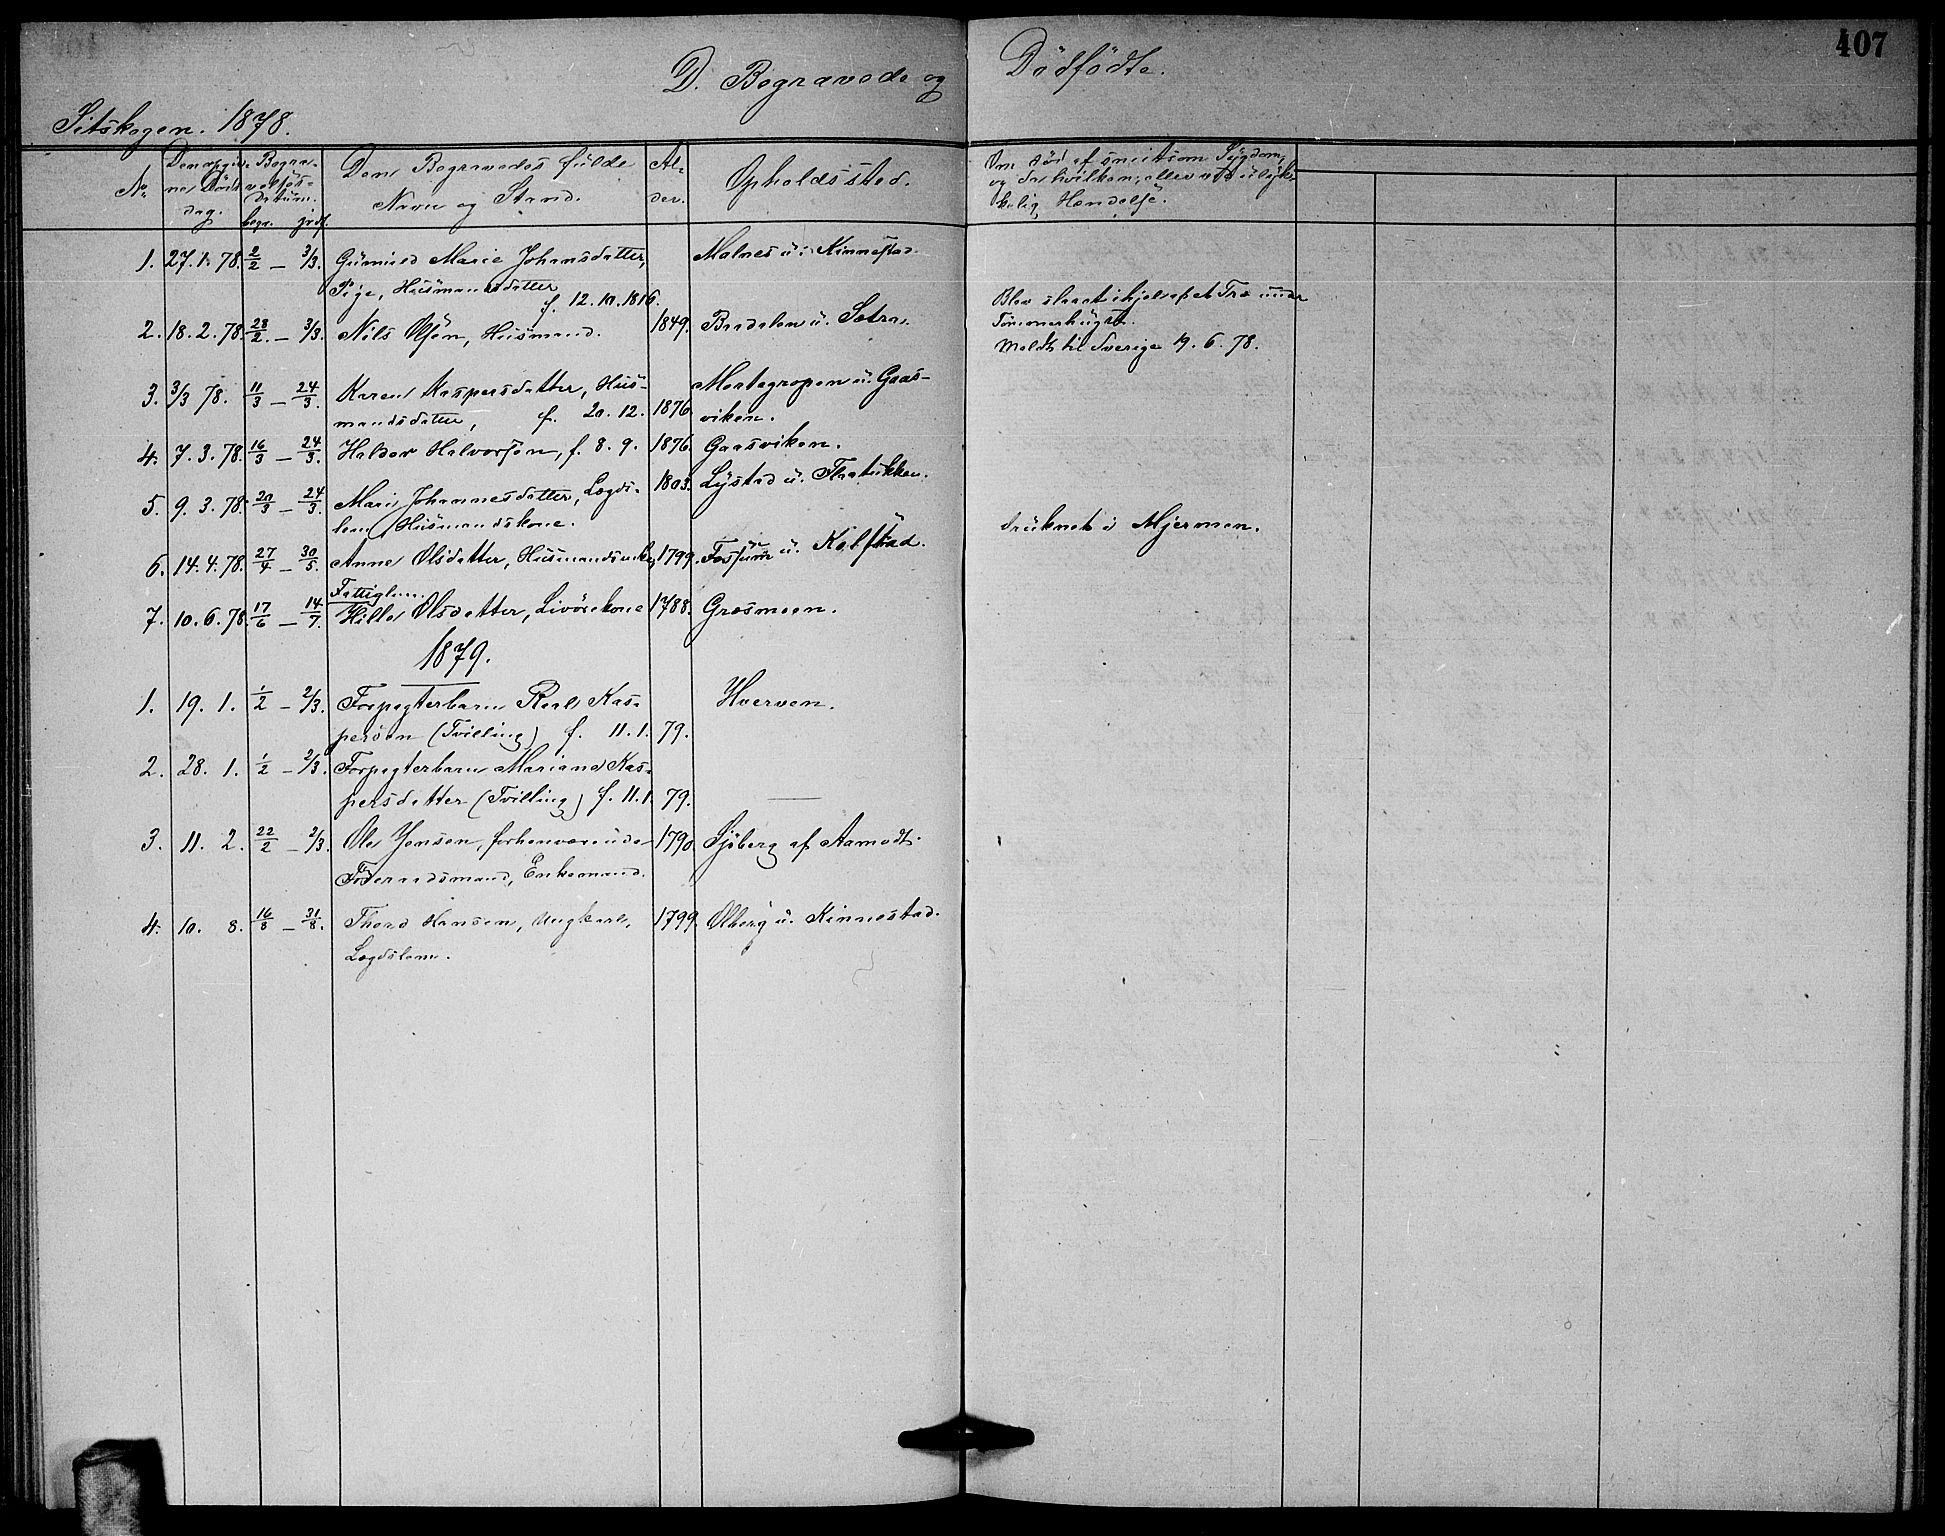 407
D. Begravede og Dödfödte.
Sitskogen. 1878.
No.
Den opgivne Döds dag.
Begravelses Datum.
begr. jrdf.
Den Begravedes fulde
Navn og Stand.
Alder.
Opholdssted.
Om död af smitsom Sygdom,
og da hvilken; eller ved ulyk-
kelig Hændelse.
1. 27. 1. 78. 2/2 — 3/3. Marie Johansdatter, Malnes u. Kinnestad.
Pige, Husmandsdatter
f. 12. 10. 1816.
Blev slaaet ihjel af et Træ under
Tömmerhugst.
2. 18. 2. 78. 28/2. — 3/3. Nils Olsen, Husmand. 1849. u. Sætra.
Meldt til Sverige 19. 6. 78.
3. 3/3 78. 11/3 — 24/3. Karen Kaspersdatter, Hus-
mandsdatter, f. 20. 12. 1876. u. Gaas-
viken.
4. 7. 3. 78. 16/3 — 24/3. Halvorsen, f. 8. 9. 1876. Gaasviken.
5. 9. 3. 78. 20/3 — 24/3. Mari Johannesdatter, Lægds-
lem, Husmandskone. 1803. Lystad u.
6. 14. 4. 78. 27/4 — 30/5. Anne Olsdatter, Husmandsenke, 1799. Fossum u. Kolstad. druknet i Mjermen.
Fattiglem.
7. 10. 6. 78. 17/6 — 14/7. Olsdatter, Livörekone 1788. Græsmoen.
1879.
1. 19. 1. 1/2 — 2/3. Forpagterbarn Karl Kas-
persen (Tvilling) f. 11. 1. 79. Hverven.
2. 28. 1. 1/2 — 2/3. Forpagterbarn Mariane Kas-
persdatter (Tvilling) f. 11. 1. 79. —
3. 11. 2. 22/2 — 2/3. Ole Jensen, forhenværende 1790. Sjöberg af Aamodt.
Föderaadsmand, Enkemand.
4. 10. 8. 16/8 — 31/8. Thord Hansen, Ungkarl, 1799. Olberg u. Kinnestad.
Lægdslem.